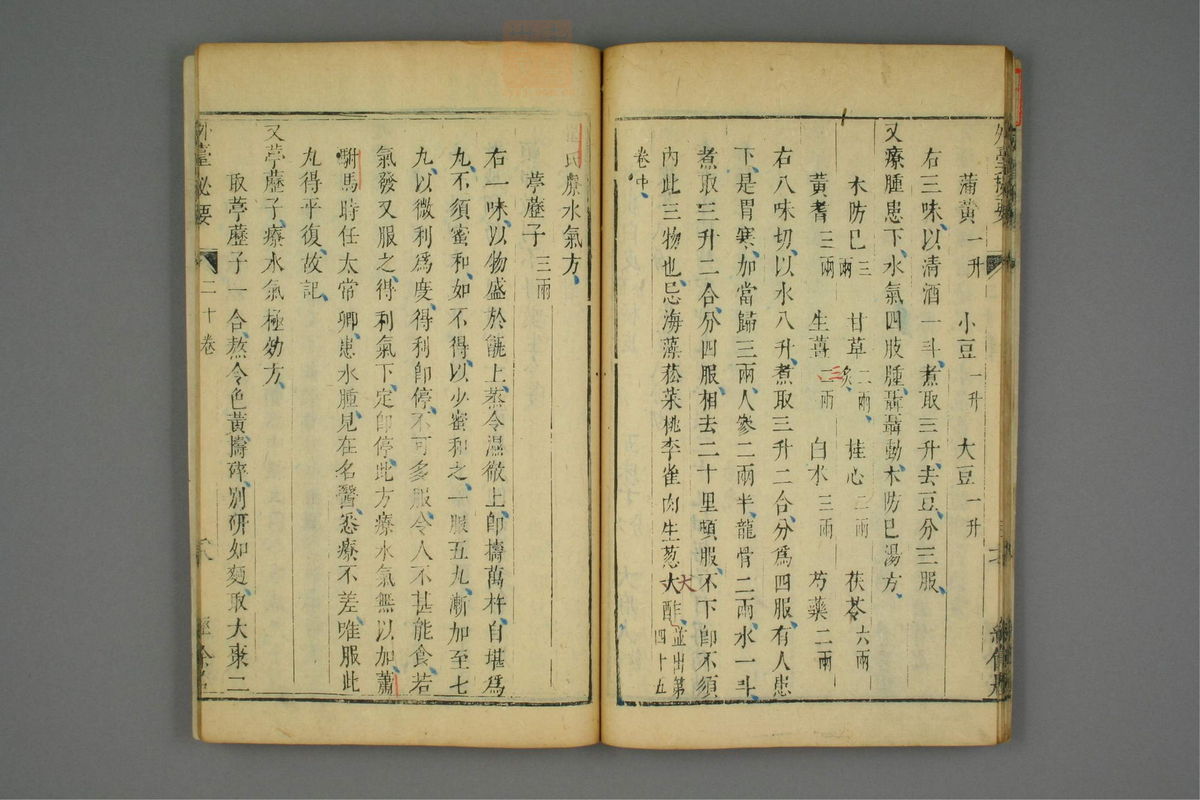 蒲黃一升 小豆一升 大豆一升
右三味以清酒一斗煮取三升去豆分三服
又療腫患下水氣四肢腫聶聶動木防巳湯方
木防巳三兩 甘草二兩炙 桂心二兩 茯苓六兩
黃耆三兩 生薑三二兩 白水三兩 芍藥二兩
右八味切以水八升煮取三升二合分爲四服有人患
下是胃寒加當歸三兩人參二兩半龍骨二兩水一斗
煮取三升二合分四服相去二十里頓服不下卽不須
內此三物也忌海藻菘菜桃李雀肉生葱大大酢並出第四十五
卷中
氏療水氣方
葶藶子三兩
右一味以物盛於甑上蒸令濕徹上卽擣萬杵自堪爲
丸不須蜜和如不得以少蜜和之一服五丸漸加至七
丸以微利爲度得利卽停不可多服令人不甚能食若
氣發又服之得利氣下定卽停此方療水氣無以加蕭
駙馬時任太常卿患水腫見在名醫悉療不差唯服此
丸得平復故記
又葶藶子療水氣極効方
取葶藶子一合熬令色黃擣碎別研如麵取大棗二
外臺祕要 二十卷 經餘居